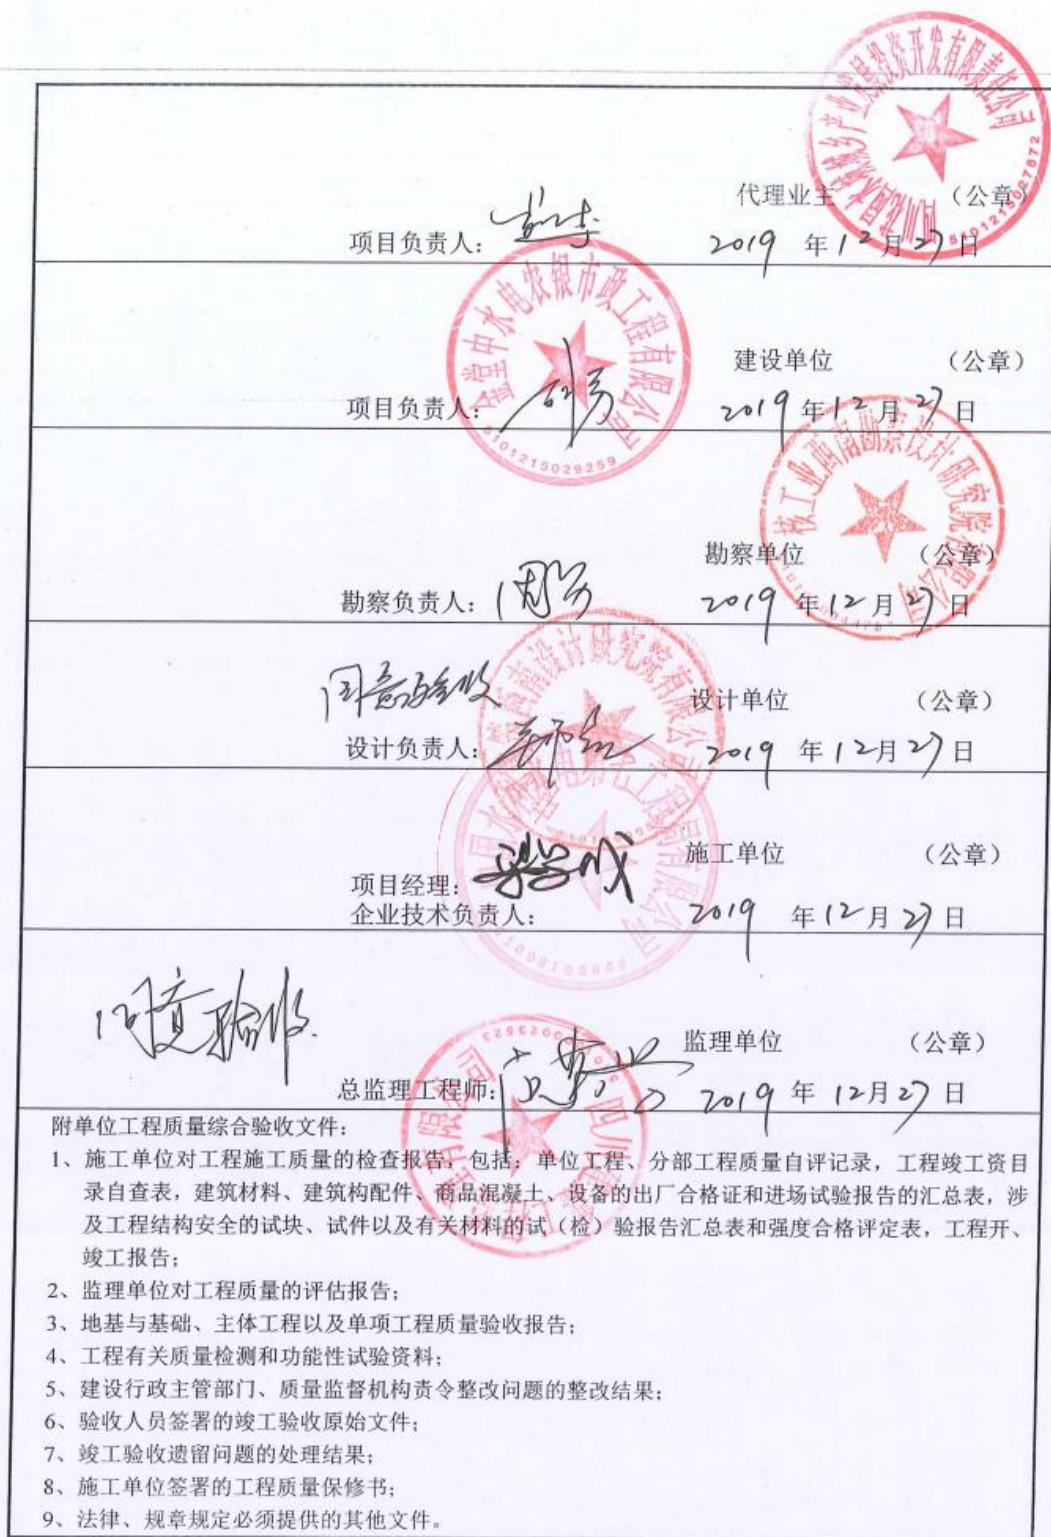 代理业主 （公章）
项目负责人： 2019 年 12 月 27 日
金堂中水电农银市政工程有限公司
5101215029259
建设单位 （公章）
项目负责人： 2019 年 12 月 27 日
核工业西南勘察设计研究院有限公司
勘察单位 （公章）
勘察负责人： 2019 年 12 月 27 日
同意验收 设计单位 （公章）
设计负责人： 2019 年 12 月 27 日
施工单位 （公章）
项目经理：
企业技术负责人： 2019 年 12 月 27 日
同意验收 监理单位 （公章）
总监理工程师： 2019 年 12 月 27 日
附单位工程质量综合验收文件：
1、施工单位对工程施工质量的检查报告，包括：单位工程、分部工程质量自评记录，工程竣工资目
录自查表，建筑材料、建筑构配件、商品混凝土、设备的出厂合格证和进场试验报告的汇总表，涉
及工程结构安全的试块、试件以及有关材料的试（检）验报告汇总表和强度合格评定表，工程开、
竣工报告；
2、监理单位对工程质量的评估报告；
3、地基与基础、主体工程以及单项工程质量验收报告；
4、工程有关质量检测和功能性试验资料；
5、建设行政主管部门、质量监督机构责令整改问题的整改结果；
6、验收人员签署的竣工验收原始文件；
7、竣工验收遗留问题的处理结果；
8、施工单位签署的工程质量保修书；
9、法律、规章规定必须提供的其他文件。